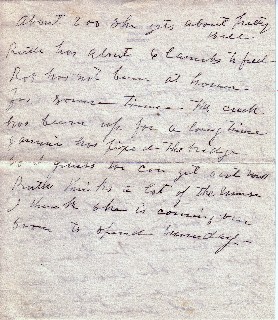 About 200 she gets about pretty
well.
Ruth has about 6 lambs to feed
Rob hasn't been at home
for some time. The creek
has been up for a long time
has fixed the bridge
so I guess we can get out now
Ruth thinks a lot of the
I think she is coming
soon to spend Sunday.